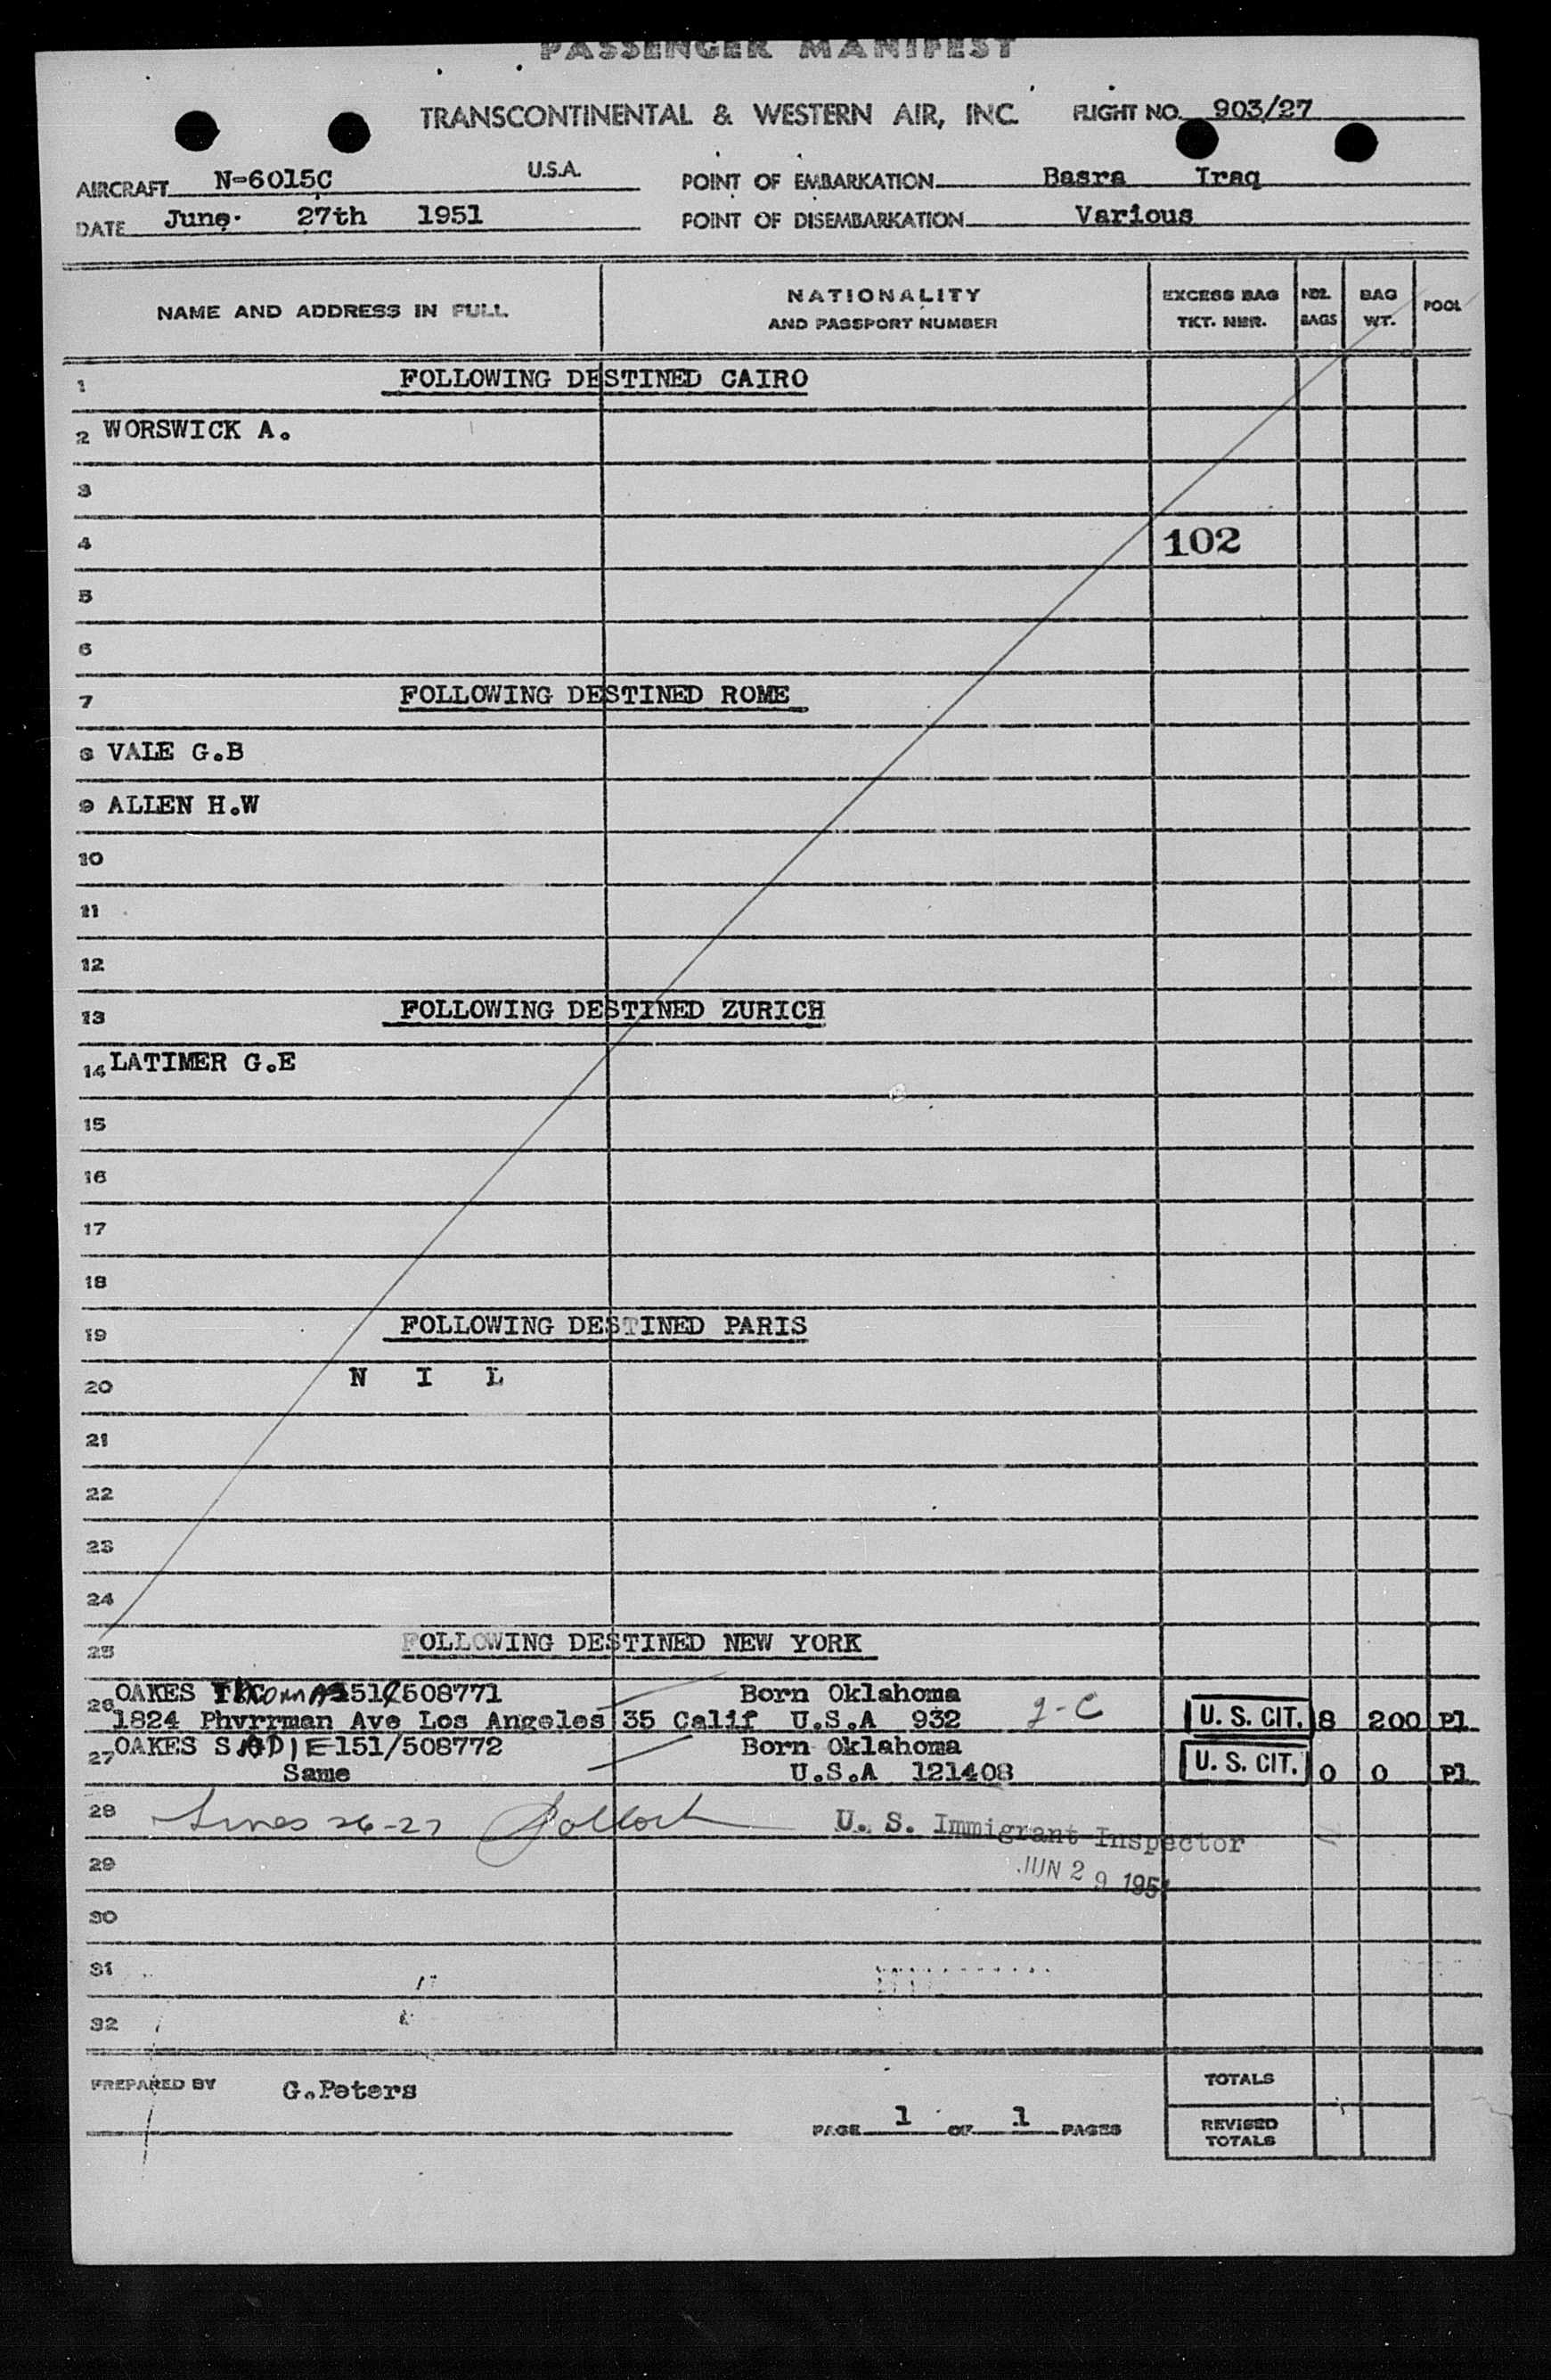 PASSENGER MANIFEST
TRANSCONTINENTAL & WESTERN AIR, INC. FLIGHT NO. 903/27
AIRCRAFT N-6015C U.S.A. POINT OF EMBARKATION Basra Iraq
DATE June 27th 1951 POINT OF DISEMBARKATION Various
NAME AND ADDRESS IN FULL NATIONALITY AND PASSPORT NUMBER EXCESS BAG TKT. NBR. NBR. BAGS BAG WT. POOL
1 FOLLOWING DESTINED CAIRO
2 WORSWICK A.
3
4 102
5
6
7 FOLLOWING DESTINED ROME
8 VALE G.B
9 ALLEN H.W
10
11
12
13 FOLLOWING DESTINED ZURICH
14 LATIMER G.E
15
16
17
18
19 FOLLOWING DESTINED PARIS
20 N I L
21
22
23
24
25 FOLLOWING DESTINED NEW YORK
26 OAKES 508771 Born Oklahoma
1824 Phvrrman Ave Los Angeles 35 Calif U.S.A 932 U. S. CIT. 8 200 Pl
27 OAKES SADIE 151/508772 Born Oklahoma
Same U.S.A 121408 U. S. CIT. 0 0 Pl
28 Lines 26-27 Pollock U. S. Immigrant Inspector
29 JUN 29 1951
30
31
32
PREPARED BY G.Peters TOTALS
PAGE 1 OF 1 PAGES REVISED TOTALS